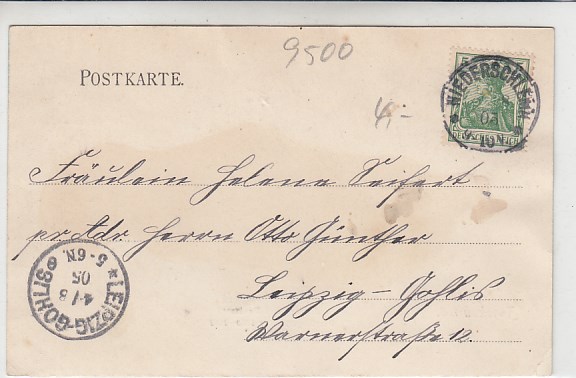 9500
POSTKARTE.
4,-
NIEDERSCHLEMA
05
9-10N
DEUTSCHES REICH
Fräulein Helene Seifert
pr. Adr. Herrn Otto Günther
Leipzig-Gohlis
Warnerstraße 12.
*LEIPZIG-GOHLIS*
4/8
05
5-6N.